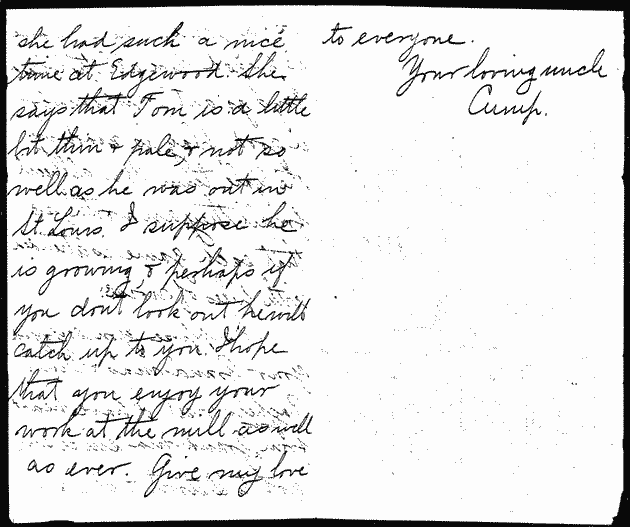 she had such a nice
time at Edgewood. She
says that Tom is a little
bit thin & pale, & not so
well as he was out in
St Louis. I suppose he
is growing, & perhaps if
you don't look out he will
catch up to you. I hope
that you enjoy your
work at the mill as well
as ever. Give my love
to everyone.
Your loving uncle
Cump.